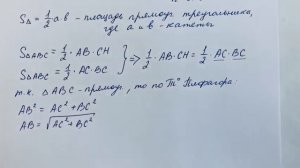 S△ = 1/2 ab - площадь прямоуг. треугольника,
где a и b - катеты
S△ABC = 1/2 · AB · CH
S△ABC = 1/2 · AC · BC } => 1/2 · AB · CH = 1/2 · AC · BC
т.к. △ABC - прямоуг., то по Тᵐ Пифагора:
AB² = AC² + BC²
AB = √AC² + BC²